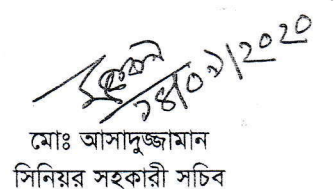 ১৪/০৯/২০২০
মোঃ আসাদুজ্জামান
সিনিয়র সহকারী সচিব